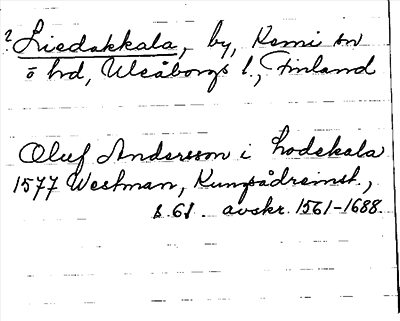 ? Liedakkala, by, Kemi sn
o hd, Uleåborgs l., Finland
Oluf Andersson i Lodekala
1577 Westman, Kungsådreinst.,
s. 61. avskr. 1561-1688.